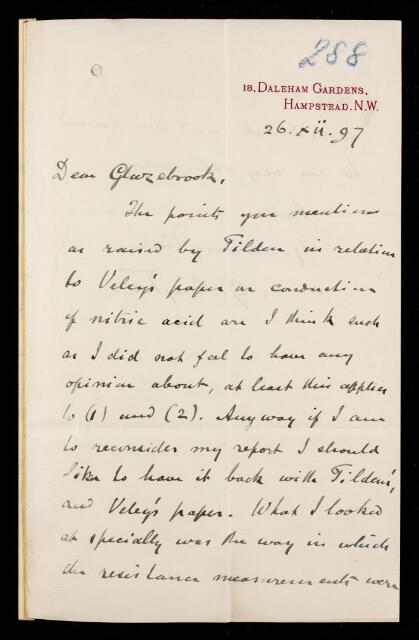 288
18, DALEHAM GARDENS,
HAMPSTEAD. N.W.
26. xii. 97
Dear Glazebrook,
The points you mention
as raised by Tilden in relation
to Veley's paper on conduction
of nitric acid are I think such
as I did not feel to have any
opinion about, at least this applies
to (1) and (2). Anyway if I am
to reconsider my report I should
like to have it back with Tilden's,
and Veley's paper. What I looked
at specially was the way in which
the resistance measurements were